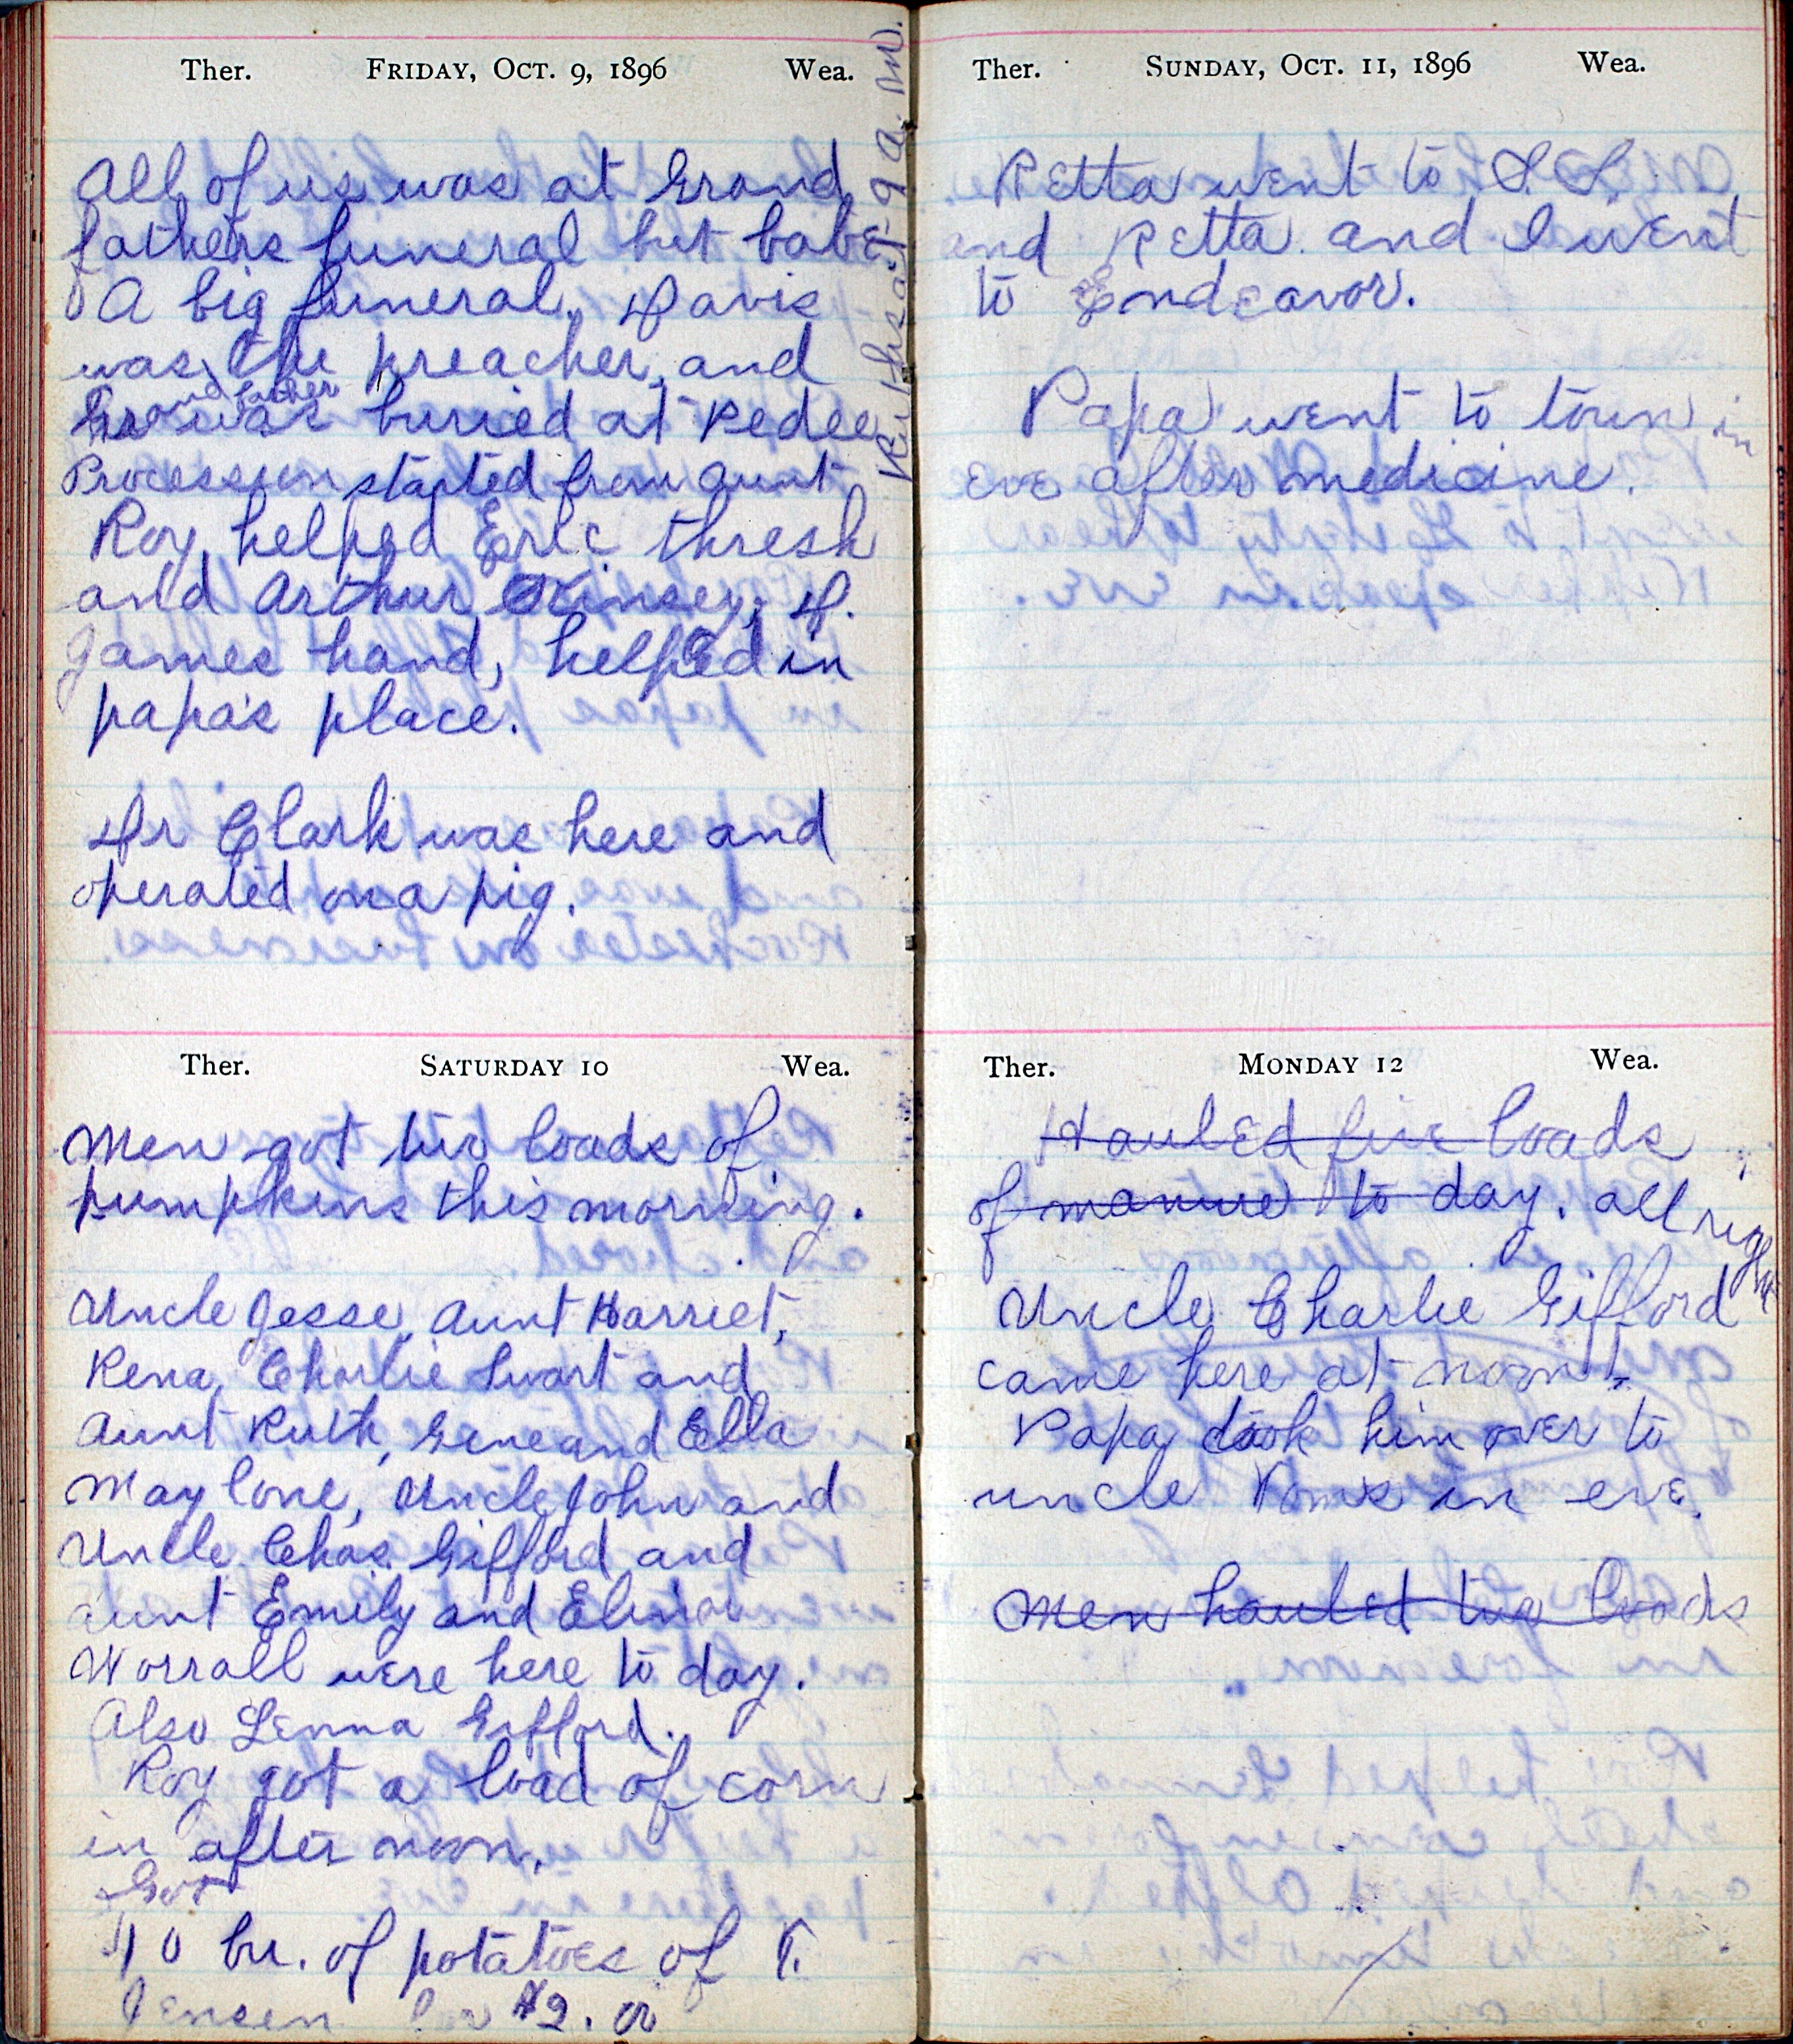 Ther. FRIDAY, OCT. 9, 1896 Wea.
All of us was at Grand
fathers funeral but babe
A big funeral. Davis
was the preacher, and
Grandfather
was buried at Pedee
Procession started from Aunt
Ruths at 9 a.m.
Roy helped Eric thresh
and Arthur Kinsey, D.
James hand, helped in
papa's place.
Dr Clark was here and
operated on a pig.
Ther. SATURDAY 10 Wea.
Men got two loads of
pumpkins this morning.
Uncle Jesse, Aunt Harriet,
Rena, Charlie Swart and
Aunt Ruth, Gene and Ella
May lone, Uncle John and
Uncle Chas. Gifford and
aunt Emily and Elinor
Worrall were here to day.
Also Lenna Gifford.
Roy got a load of corn
in after noon.
Got
10 bu. of potatoes of T.
Jensen for $2.00
Ther. SUNDAY, OCT. 11, 1896 Wea.
Retta went to S.S.
and Retta and I went
to Endeavor.
Papa went to town in
eve after medicine.
Ther. MONDAY 12 Wea.
Hauled five loads
of manure to day. all right
Uncle Charlie Gifford
came here at noon.
Papa took him over to
uncle Toms in eve.
Men hauled two loads